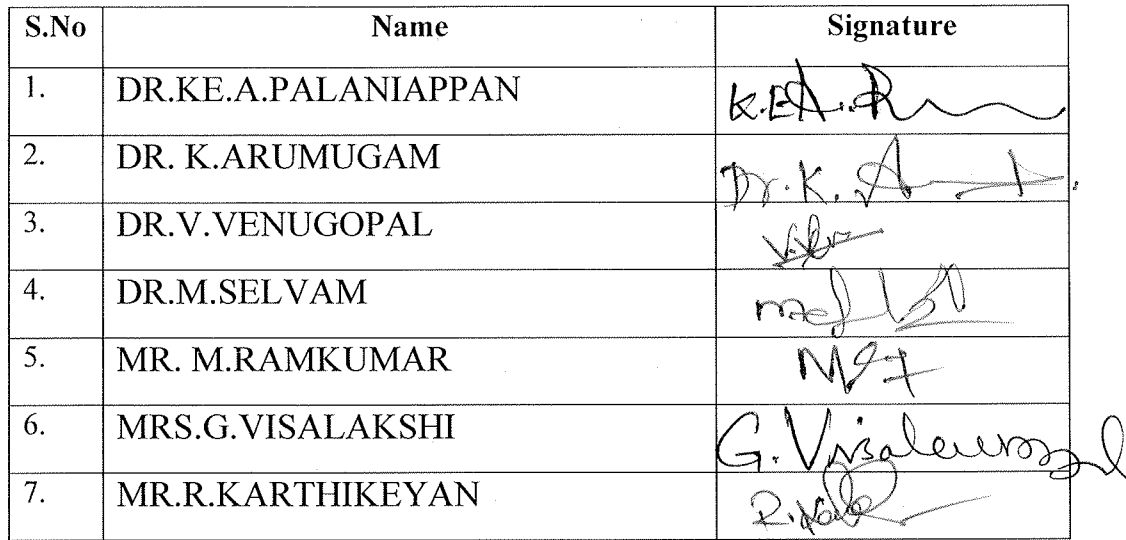 S.No Name Signature
1. DR.KE.A.PALANIAPPAN K.EA.
2. DR. K.ARUMUGAM Dr.K.
3. DR.V.VENUGOPAL
4. DR.M.SELVAM
5. MR. M.RAMKUMAR
6. MRS.G.VISALAKSHI G.
7. MR.R.KARTHIKEYAN